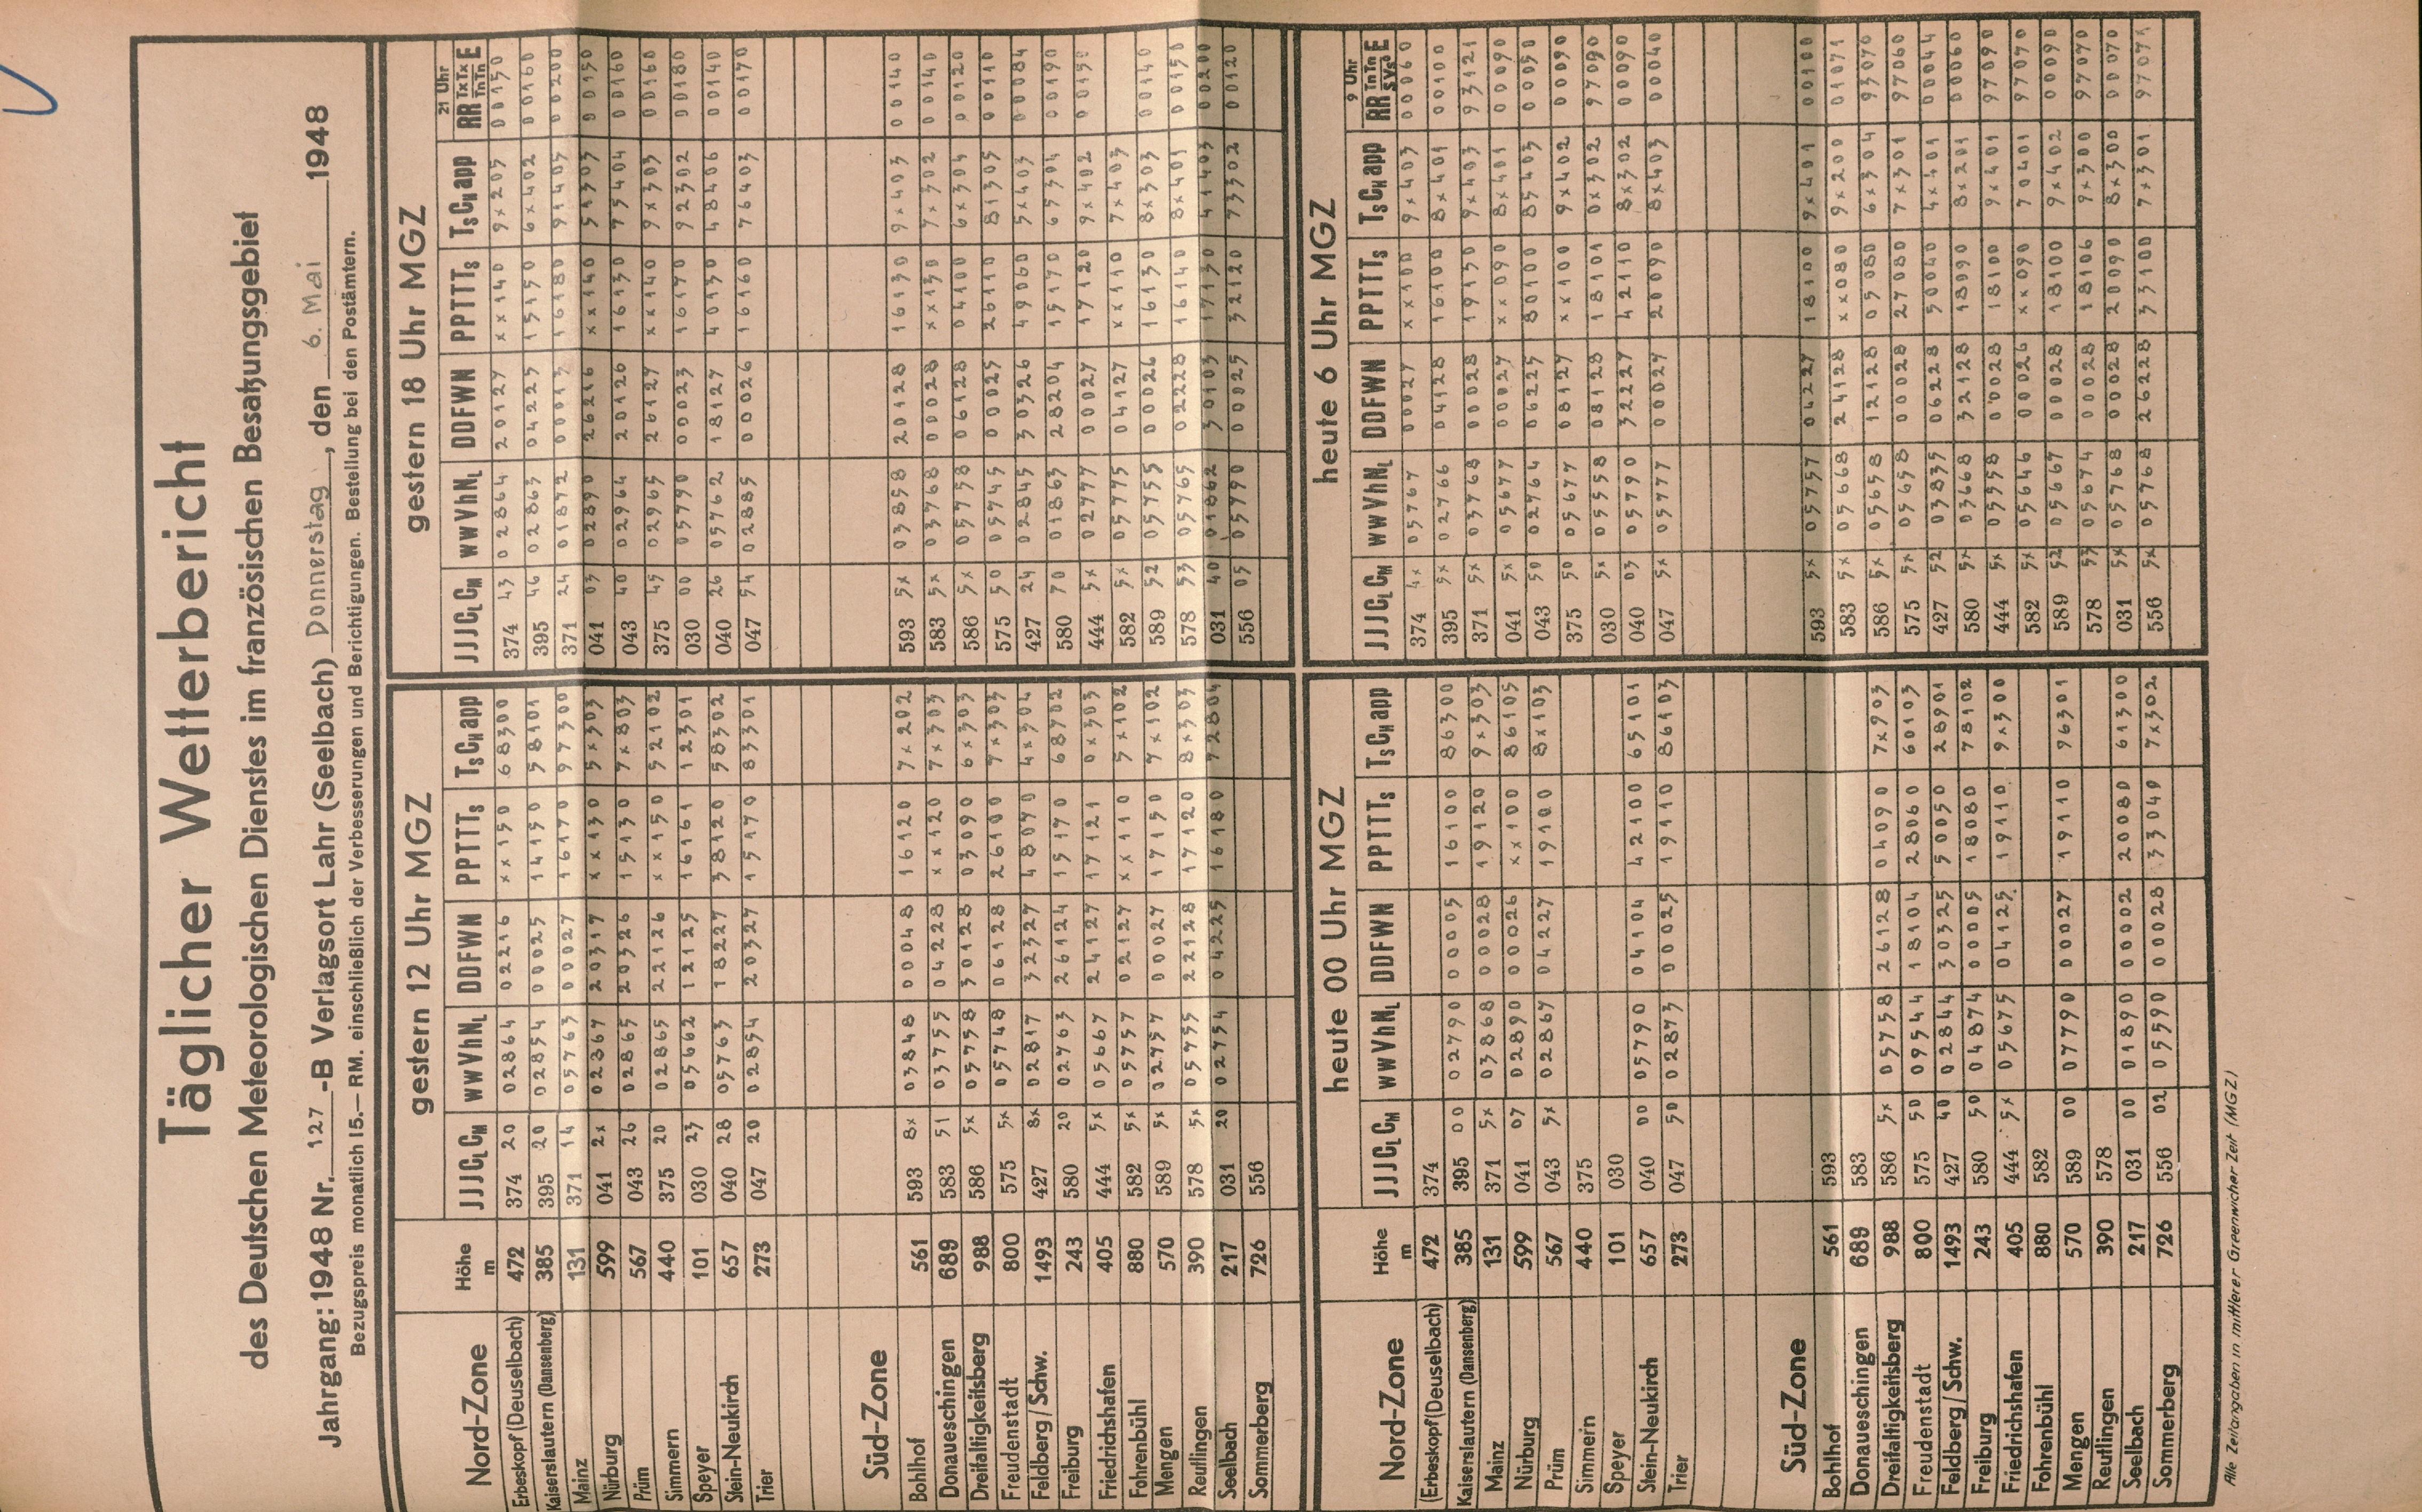 Täglicher Wetterbericht
des Deutschen Meteorologischen Dienstes im französischen Besatzungsgebiet
Jahrgang: 1948 Nr. 127 -B Verlagsort Lahr (Seelbach) Donnerstag, den 6. Mai 1948
Bezugspreis monatlich 15.— RM. einschließlich der Verbesserungen und Berichtigungen. Bestellung bei den Postämtern.
gestern 12 Uhr MGZ gestern 18 Uhr MGZ
Nord-Zone Höhe m JJJCLCM wwVhNL DDFWN PPTTTs TsCHapp JJJCLCM wwVhNL DDFWN PPTTTs TsCHapp 21 Uhr RR TxTx TnTn E
Erbeskopf (Deuselbach) 472 374 20 02864 02216 xx150 68300 374 43 02864 20127 xx140 9x203 00150
Kaiserslautern (Dansenberg) 385 395 20 02854 00025 14150 58101 395 46 02863 04225 15150 6x402 00160
Mainz 131 371 14 05763 00027 16170 97300 371 24 01872 00013 16180 91403 00200
Nürburg 599 041 2x 02867 20317 xx130 5x303 041 03 02890 26216 xx140 54303 00150
Prüm 567 043 26 02865 20326 15130 7x803 043 40 02964 20126 16130 75404 00160
Simmern 440 375 20 02865 22126 xx150 52102 375 45 02965 26127 xx140 9x303 00160
Speyer 101 030 23 05662 12125 16161 12301 030 00 05790 00023 16170 92302 00180
Stein-Neukirch 657 040 28 05763 18227 38120 58302 040 26 05762 18127 40130 48406 00140
Trier 273 047 20 02854 20327 15170 83301 047 54 02885 00026 16160 76403 00170
Süd-Zone
Bohlhof 561 593 8x 03848 00048 16120 7x202 593 5x 03858 20128 16130 9x403 00140
Donaueschingen 689 583 51 03755 04228 xx120 7x303 583 5x 03768 00028 xx130 7x302 00140
Dreifaltigkeitsberg 988 586 5x 05758 30128 03090 6x303 586 5x 05758 06128 04100 6x304 00120
Freudenstadt 800 575 5x 05748 06128 26100 7x303 575 50 05745 00025 26110 81305 00110
Feldberg/Schw. 1493 427 8x 02817 32327 48070 4x304 427 24 02845 30326 49060 5x403 00084
Freiburg 243 580 20 02763 26124 15170 68302 580 70 01863 28204 15170 65304 00190
Friedrichshafen 405 444 5x 05667 24127 17121 0x303 444 5x 02777 00027 17120 9x402 00150
Fohrenbühl 880 582 5x 05757 02127 xx110 5x102 582 5x 05775 04127 xx110 7x403
Mengen 570 589 5x 02757 00027 17150 7x102 589 52 05755 00026 16130 8x303 00140
Reutlingen 390 578 5x 05755 22128 17120 8x303 578 53 05765 02228 16140 8x401 00150
Seelbach 217 031 20 02754 04225 16180 72804 031 40 01862 30103 17130 41403 00200
Sommerberg 726 556 556 05 05790 00025 32120 73302 00120
heute 00 Uhr MGZ heute 6 Uhr MGZ
Nord-Zone Höhe m JJJCLCM wwVhNL DDFWN PPTTTs TsCHapp JJJCLCM wwVhNL DDFWN PPTTTs TsCHapp 9 Uhr RR TnTn SySo E
(Erbeskopf (Deuselbach) 472 374 374 4x 05767 00027 xx100 9x403 00060
Kaiserslautern (Dansenberg) 385 395 00 02790 00005 16100 86300 395 5x 02766 04128 16100 8x401 00100
Mainz 131 371 5x 03868 00028 19120 9x303 371 5x 03768 00028 19130 9x403 93121
Nürburg 599 041 07 02890 00026 xx100 86105 041 5x 05677 00027 xx090 8x401 00090
Prüm 567 043 5x 02867 04227 19100 8x103 043 50 02764 06225 80100 85403 00050
Simmern 440 375 375 50 05677 08127 xx100 9x402 00090
Speyer 101 030 030 5x 05558 08128 18101 0x302 97090
Stein-Neukirch 657 040 00 05790 04104 42100 65101 040 03 05790 32227 42110 8x302 00090
Trier 273 047 50 02873 00025 19110 86103 047 5x 05777 00027 20090 8x403 00040
Süd-Zone
Bohlhof 561 593 593 5x 05757 04227 18100 9x401 00100
Donaueschingen 689 583 583 5x 05668 24128 xx080 9x200 01071
Dreifaltigkeitsberg 988 586 5x 05758 26128 04090 7x903 586 5x 05658 12128 05080 6x304 93070
Freudenstadt 800 575 50 09544 18104 28060 60103 575 5x 05658 00028 27080 7x301 97060
Feldberg/Schw. 1493 427 40 02844 30325 50050 28901 427 52 03835 06228 50040 4x401 00044
Freiburg 243 580 50 04874 00005 18080 78102 580 5x 03668 32128 18090 8x201 00060
Friedrichshafen 405 444 5x 05675 04125 19110 9x300 444 5x 05558 00028 18100 9x401 97090
Fohrenbühl 880 582 582 5x 05646 00026 xx090 70401 97070
Mengen 570 589 00 07790 00027 19110 96301 589 52 05667 00028 18100 9x402 00090
Reutlingen 390 578 578 53 05674 00028 18106 9x300 97070
Seelbach 217 031 00 01890 00002 20080 61300 031 5x 05768 00028 20090 8x300 00070
Sommerberg 726 556 02 05590 00028 33040 7x302 556 5x 05768 26228 33100 7x301 97071
Alle Zeitangaben in mittlerer Greenwicher Zeit (MGZ)